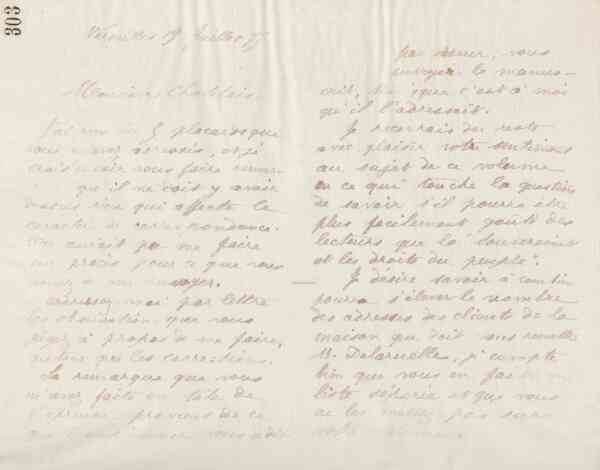 303
Versailles 19 Juillet
Monsieur Chablais,
J'ai reçu 5 placards que
vous adressés, et je
crois devoir vous faire
qu'il ne doit y avoir
dessus rien qui affecte le
caractère de correspondance.
On aurait pu me faire
un procès pour ce que vous
envoyer.
Adressez moi par lettre
les observations que vous
jugez à propos de me faire,
que les corrections.
La remarque que vous
m'avez faite en tête de
l'épreuve provient de ce
que
par erreur, vous
envoyer le manus-
crit, c'est à moi
qu'il l'adressait.
Je recevrais du reste
avec plaisir votre sentiment
au sujet de ce volume
en ce qui touche la question
de savoir s'il pourra être
plus facilement goûté des
lecteurs que la "Souveraineté
et les droits du peuple".
Je désire savoir à combien
pourra s'élever le nombre
des adresses des clients de la
maison que doit vous remettre
M. Delaruelles, je compte
bien que vous en
liste séparée et que vous
ne les mettez pas sur
votre